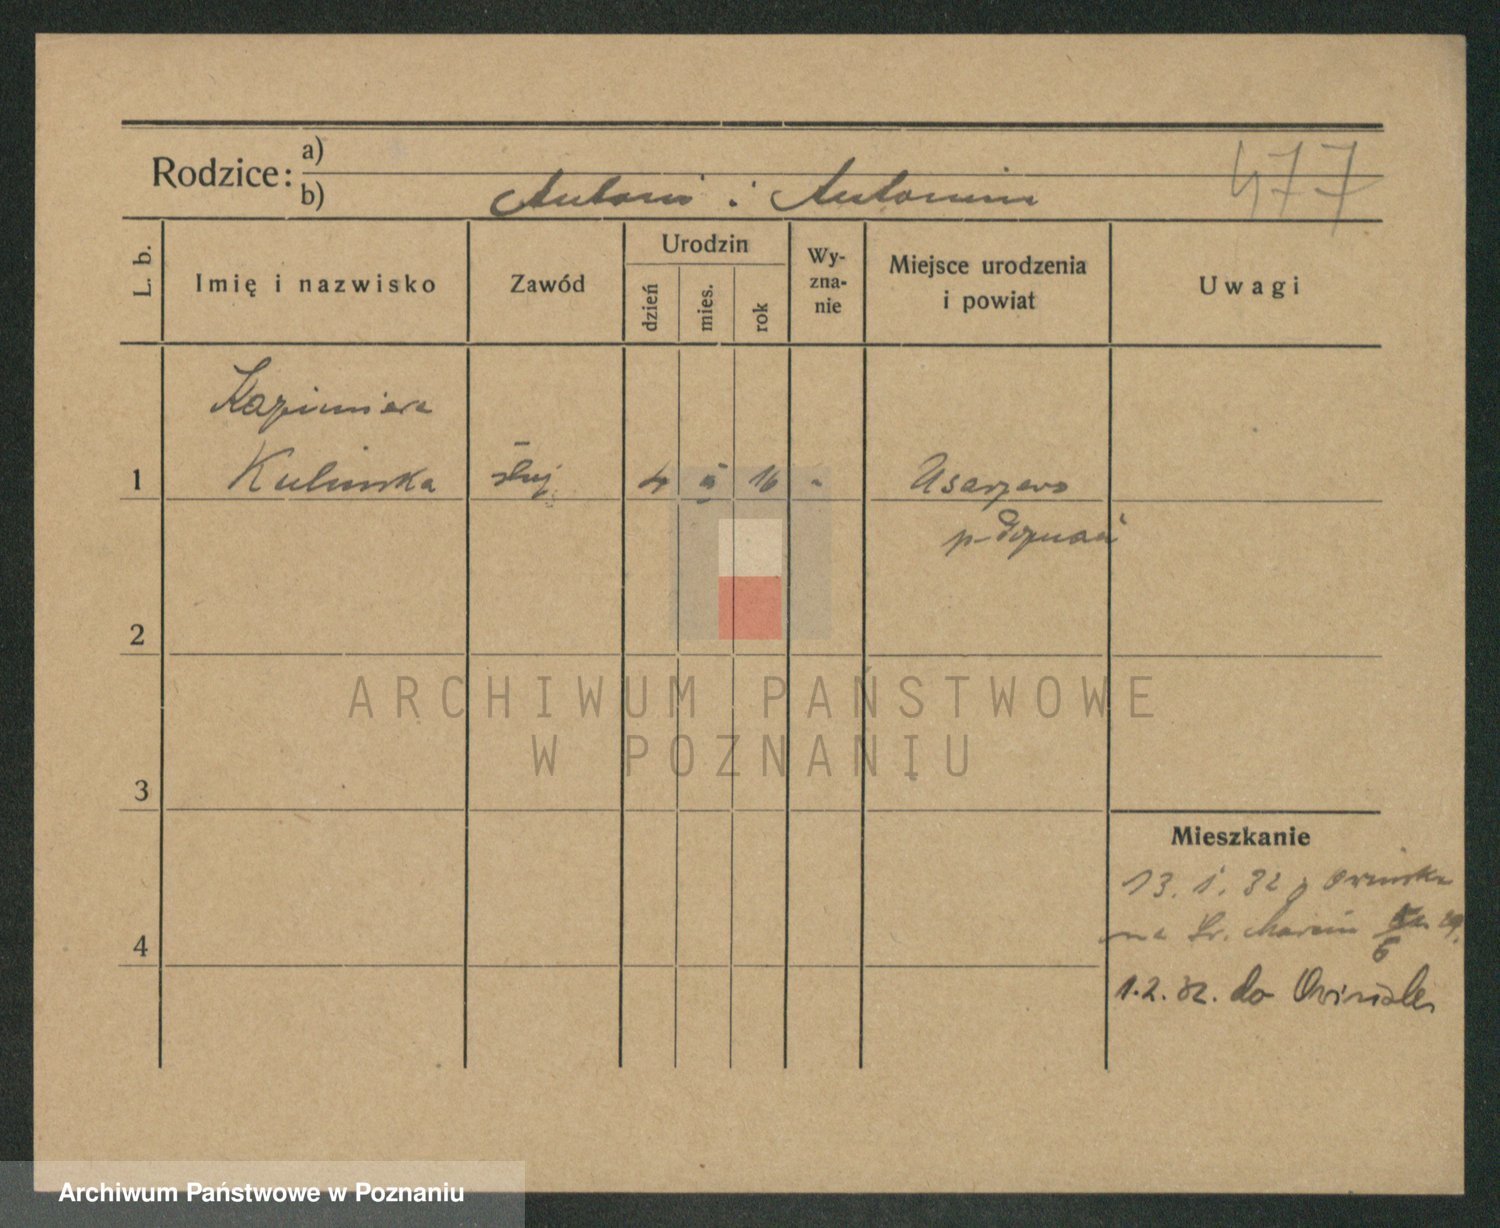 Rodzice: a)
b) Antoni i Antonina
477
L. b.
Imię i nazwisko
Zawód
Urodzin
dzień
mies.
rok
Wy-
zna-
nie
Miejsce urodzenia
i powiat
Uwagi
Kazimiera
1 Kulinska służ 4 16 Usarzewo
p. Poznań
2
ARCHIWUM PAŃSTWOWE
W POZNANIU
3
Mieszkanie
13. 1. 32 z Owinska
na Św. Marcin 29.
6
4
1.2.32. do Owinsk
Archiwum Państwowe w Poznaniu